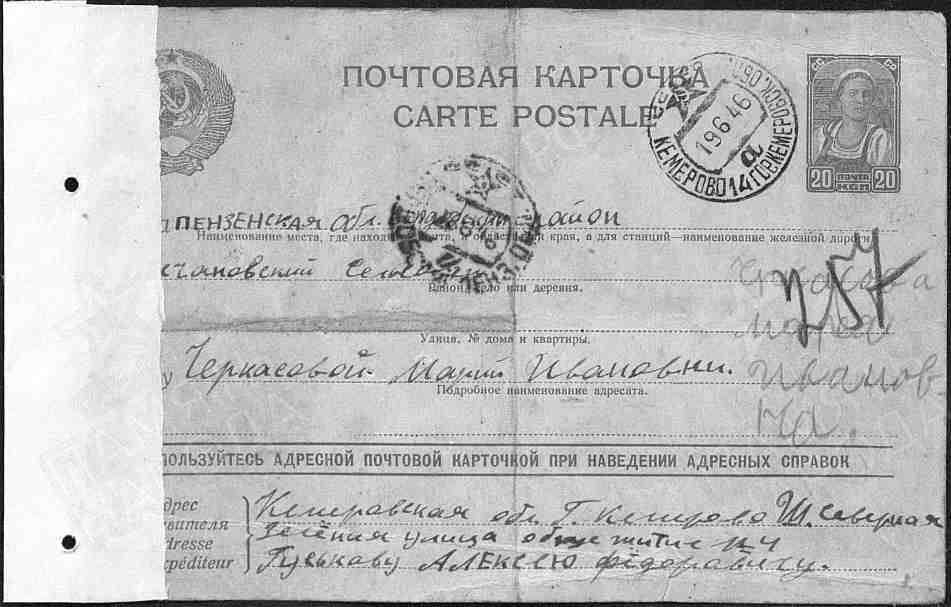 ПОЧТОВАЯ КАРТОЧКА
CARTE POSTALE
КЕМЕРОВО 14 ГОР КЕМЕРОВСК. ОБЛ.
19 6 46
а
ПОЧТА
20 КОП 20
ПЕНЗЕНСКАЯ обл. район
Наименование места, где находится почта, и области или края, а для станций—наименование железной дороги
Район, село или деревня.
157
Улица, № дома и квартиры.
Черкасовой Марий Ивановни.
Подробное наименование адресата.
Марея
Иванов-
на.
ПОЛЬЗУЙТЕСЬ АДРЕСНОЙ ПОЧТОВОЙ КАРТОЧКОЙ ПРИ НАВЕДЕНИИ АДРЕСНЫХ СПРАВОК
дрес
вителя
dresse
xpéditeur
Кемеровская обл. Г. Кемерово Ш. северная
Зелёния улица общежитие №4
Гуськаву АЛЕКСЕЮ фідоравичу.